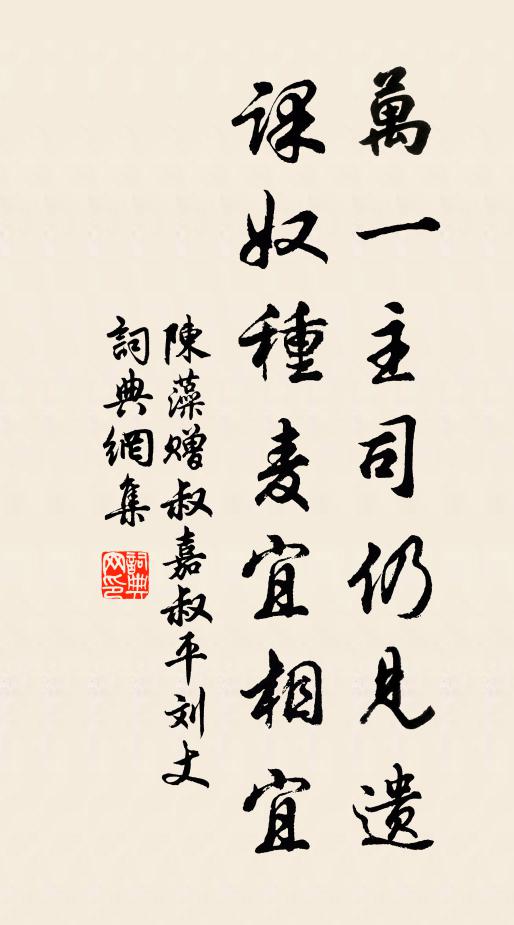 萬一主司仍見遺
課奴種麦宜相宜
陳藻赠叔嘉叔平刘丈
詞典網集
詞典網印